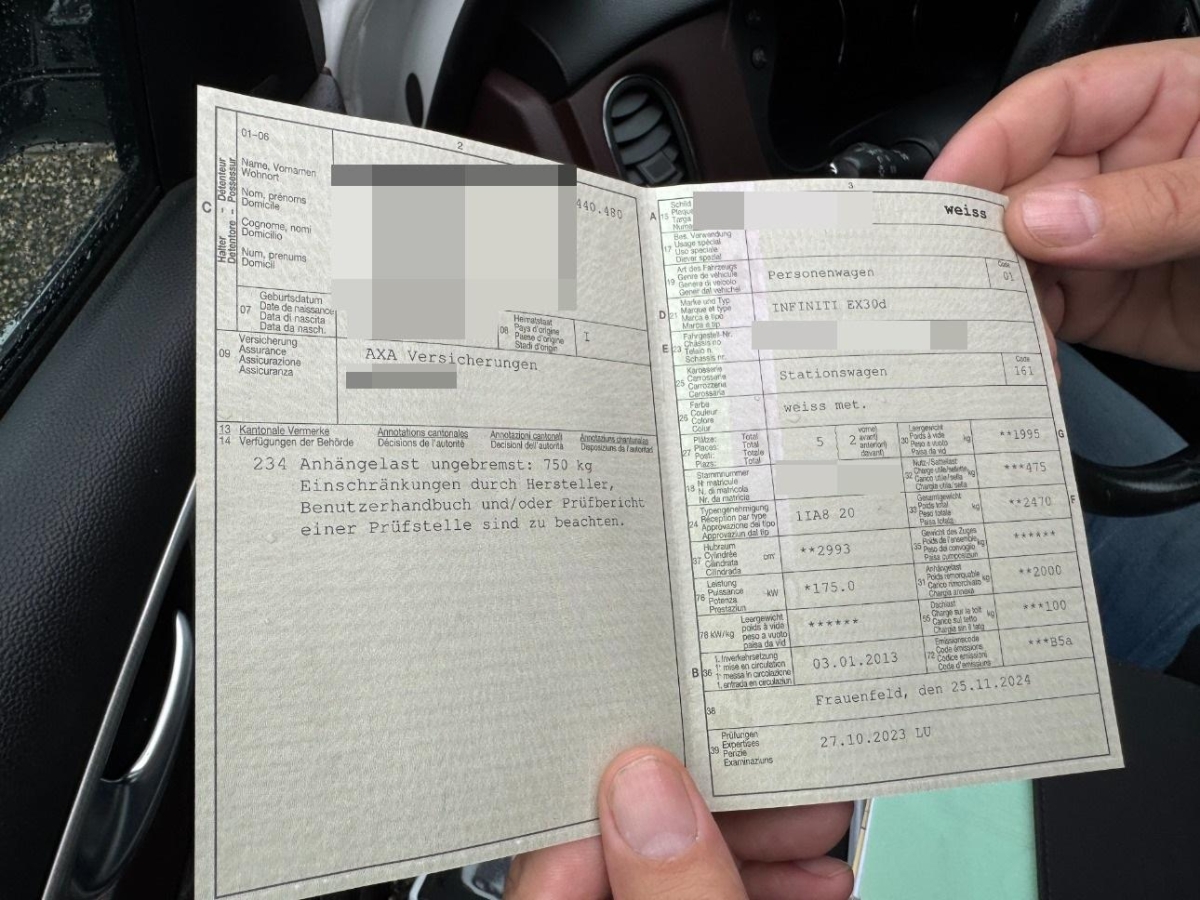 2
01-06
Name, Vornamen
Wohnort
Nom, prénoms
Domicile
Cognome, nomi
Domicilio
Num, prenums
Domicil
C
Halter - Détenteur
Detentore - Possessur
440.480
07
Geburtsdatum
Date de naissance
Data di nascita
Data da nasch.
08
Heimatstaat
Pays d'origine
Paese d'origine
Stadi d'origin
I
09
Versicherung
Assurance
Assicurazione
Assicuranza
AXA Versicherungen
13 Kantonale Vermerke Annotations cantonales Annotazioni cantonali Annotaziuns chantunalas
14 Verfügungen der Behörde Décisions de l'autorité Decisioni dell'autorità Disposiziuns da l'autoritad
234 Anhängelast ungebremst: 750 kg
Einschränkungen durch Hersteller,
Benutzerhandbuch und/oder Prüfbericht
einer Prüfstelle sind zu beachten.
3
A
15
Schild
weiss
17
Bes. Verwendung
Usage spécial
Uso speciale
Diever spezial
19
Art des Fahrzeugs
Genre de véhicule
Genere di veicolo
Gener dal vehichel
Personenwagen
Code
01
D
21
Marke und Typ
Marque et type
Marca e tipo
Marca e tip
INFINITI EX30d
E
23
Fahrgestell-Nr.
Châssis no
Telaio n.
Schassis nr.
25
Karosserie
Carrosserie
Carrozzeria
Carossaria
Stationswagen
Code
161
26
Farbe
Couleur
Colore
Colur
weiss met.
27
Plätze: Total
Places: Total
Posti: Totale
Plazs: Total
5
2
vorne
avant
anteriori
davant
30
Leergewicht
Poids à vide
Peso a vuoto
Paisa da vid
kg
**1995
G
18
Stammnummer
N° matricule
N. di matricola
Nr. da matricla
32
Nutz-/Sattellast
Charge utile/sellette
Carico utile/sella
Chargia utila/sella
kg
***475
24
Typengenehmigung
Réception par type
Approvazione del tipo
Approvaziun dal tip
1IA8 20
33
Gesamtgewicht
Poids total
Peso totale
Paisa totala
kg
**2470
F
37
Hubraum
Cylindrée
Cilindrata
Cilindrada
cm³
**2993
35
Gewicht des Zuges
Poids de l'ensemble
Peso del convoglio
Paisa cumposiziun
kg
******
76
Leistung
Puissance
Potenza
Prestaziun
kW
*175.0
31
Anhängelast
Poids remorquable
Carico rimorchiato
Chargia annexa
kg
**2000
78 kW/kg
Leergewicht
poids à vide
peso a vuoto
paisa da vid
******
55
Dachlast
Charge sur le toit
Carico sul tetto
Chargia sin il tetg
kg
***100
B
36
1. Inverkehrsetzung
1re mise en circulation
1a messa in circolazione
1. entrada en circulaziun
03.01.2013
72
Emissionscode
Code émissions
Codice emissioni
Code d'emissiuns
***B5a
38
Frauenfeld, den 25.11.2024
39
Prüfungen
Expertises
Perizie
Examinaziuns
27.10.2023 LU